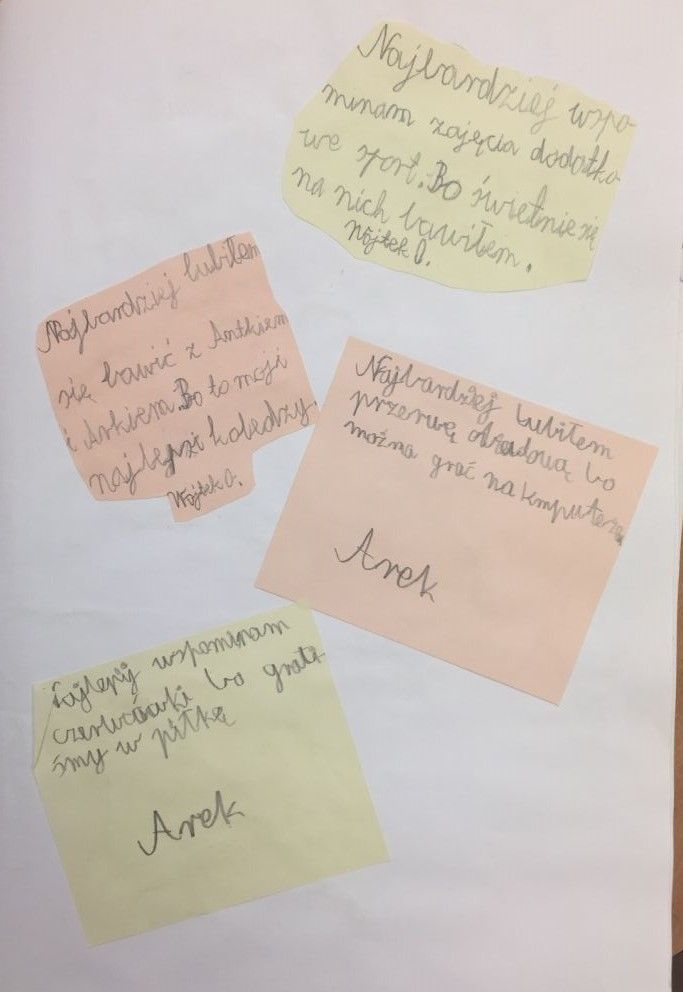 Najbardziej wspo
minam zajęcia dodatko
we sport. Bo świetnie się
na nich bawiłem.
Wojtek O.
Najbardziej lubiłem
się bawić z Antkiem
i Arkiem. Bo to moji
najlepszi koledzy.
Wojtek O.
Najbardziej lubiłem
przerwę obiadową bo
można grać na komputerze
Arek
Najlepij wspominam
czerwcówki bo grali-
śmy w piłkę
Arek